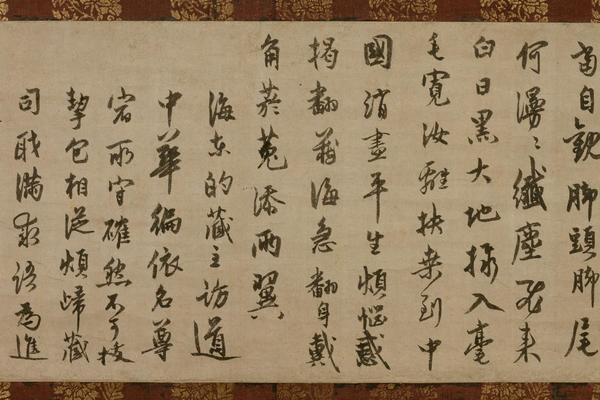 當自觀脚頭脚尾
何漫〻纖塵来
白日黑大地入毫
毛寛汝離扶桑到中
國消盡平生煩惱惑
掲翻藏海急翻身戴
角菸菟添兩翼
海東的藏主訪道
中華徧依名尊
宿所守確然不可拔
挈包相從煩歸藏
司職滿求語為進